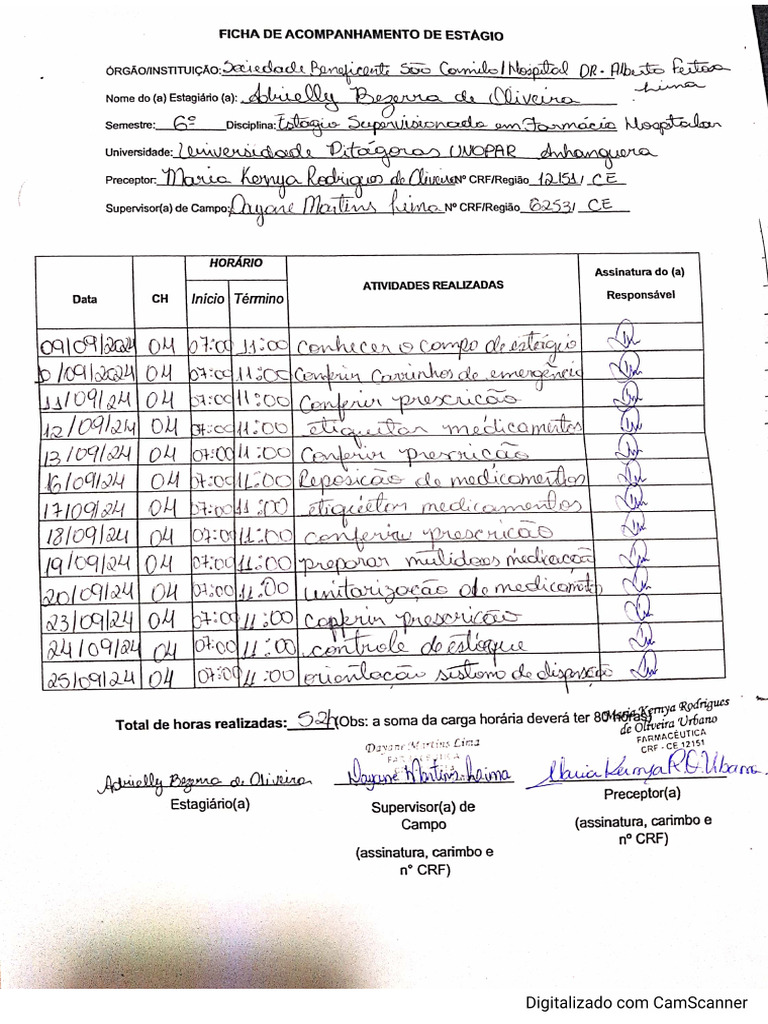 FICHA DE ACOMPANHAMENTO DE ESTÁGIO
ÓRGÃO/INSTITUIÇÃO: Sociedade Beneficente São Camilo/Hospital DR. Alberto Feitosa
Lima
Nome do (a) Estagiário (a): Adrielly Bezerra de Oliveira
Semestre: 6º Disciplina: Estágio Supervisionado em Farmácia Hospitalar
Universidade: Universidade Pitágoras UNOPAR Anhanguera
Preceptor: Maria Kernya Rodrigues de Oliveira Nº CRF/Região 12151/ CE
Supervisor(a) de Campo: Dayane Martins Lima Nº CRF/Região 6253/ CE
Data CH HORÁRIO Início Término ATIVIDADES REALIZADAS Assinatura do (a) Responsável
09/09/2024 04 07:00 11:00 conhecer o campo de estágio
10/09/2024 04 07:00 11:00 Conferir Carrinhos de emergência
11/09/24 04 07:00 11:00 Conferir prescrição
12/09/24 04 07:00 11:00 etiquetar medicamentos
13/09/24 04 07:00 11:00 Conferir prescrição
16/09/24 04 07:00 11:00 Reposição de medicamentos
17/09/24 04 07:00 11:00 etiquetar medicamentos
18/09/24 04 07:00 11:00 conferir prescrição
19/09/24 04 07:00 11:00 preparar medicação
20/09/24 04 07:00 11:00 unitarização de medicamentos
23/09/24 04 07:00 11:00 conferir prescrição
24/09/24 04 07:00 11:00 controle de estoque
25/09/24 04 07:00 11:00 orientação sistema de dispensação
Total de horas realizadas: 52h (Obs: a soma da carga horária deverá ter 80 horas)
Maria Kernya Rodrigues
de Oliveira Urbano
FARMACÊUTICA
CRF - CE 12151
Dayane Martins Lima
FARMACÊUTICA
Adrielly Bezerra de Oliveira Dayane Martins Lima Maria Kernya R.O. Urbano
Estagiário(a)
Supervisor(a) de
Campo
(assinatura, carimbo e
n° CRF)
Preceptor(a)
(assinatura, carimbo e
nº CRF)
Digitalizado com CamScanner